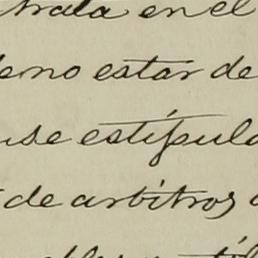 trata en el
no estar de
use estipula
de arbitros